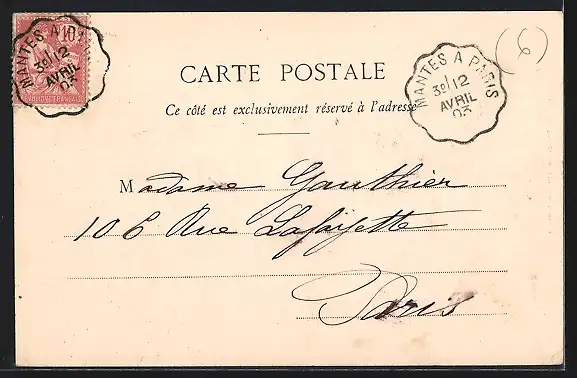 10
MANTES A PARIS
3E/12
AVRIL
03
RÉPUBLIQUE FRANÇAISE
(6)
MANTES A PARIS
3E/12
AVRIL
03
CARTE POSTALE
Ce côté est exclusivement réservé à l'adresse
Madame Gauthier
106 Rue Lafayette
Paris